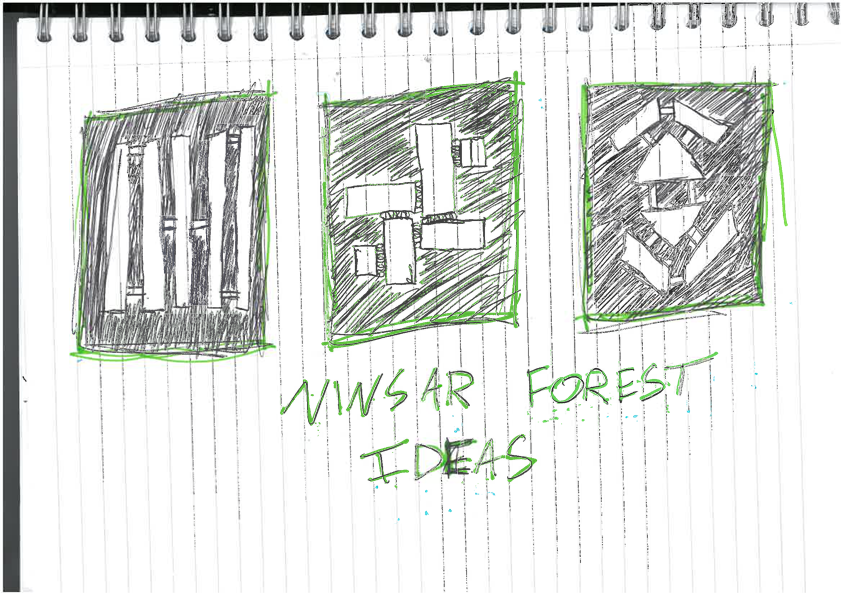 NINSAR FOREST
IDEAS